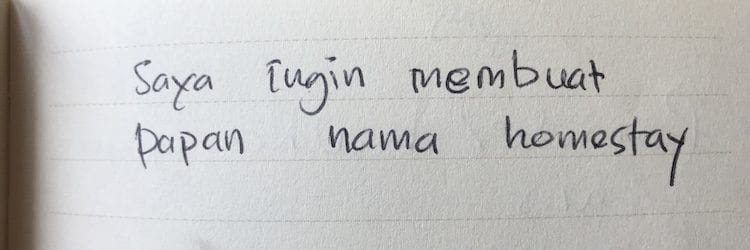 Saya ingin membuat
papan nama homestay